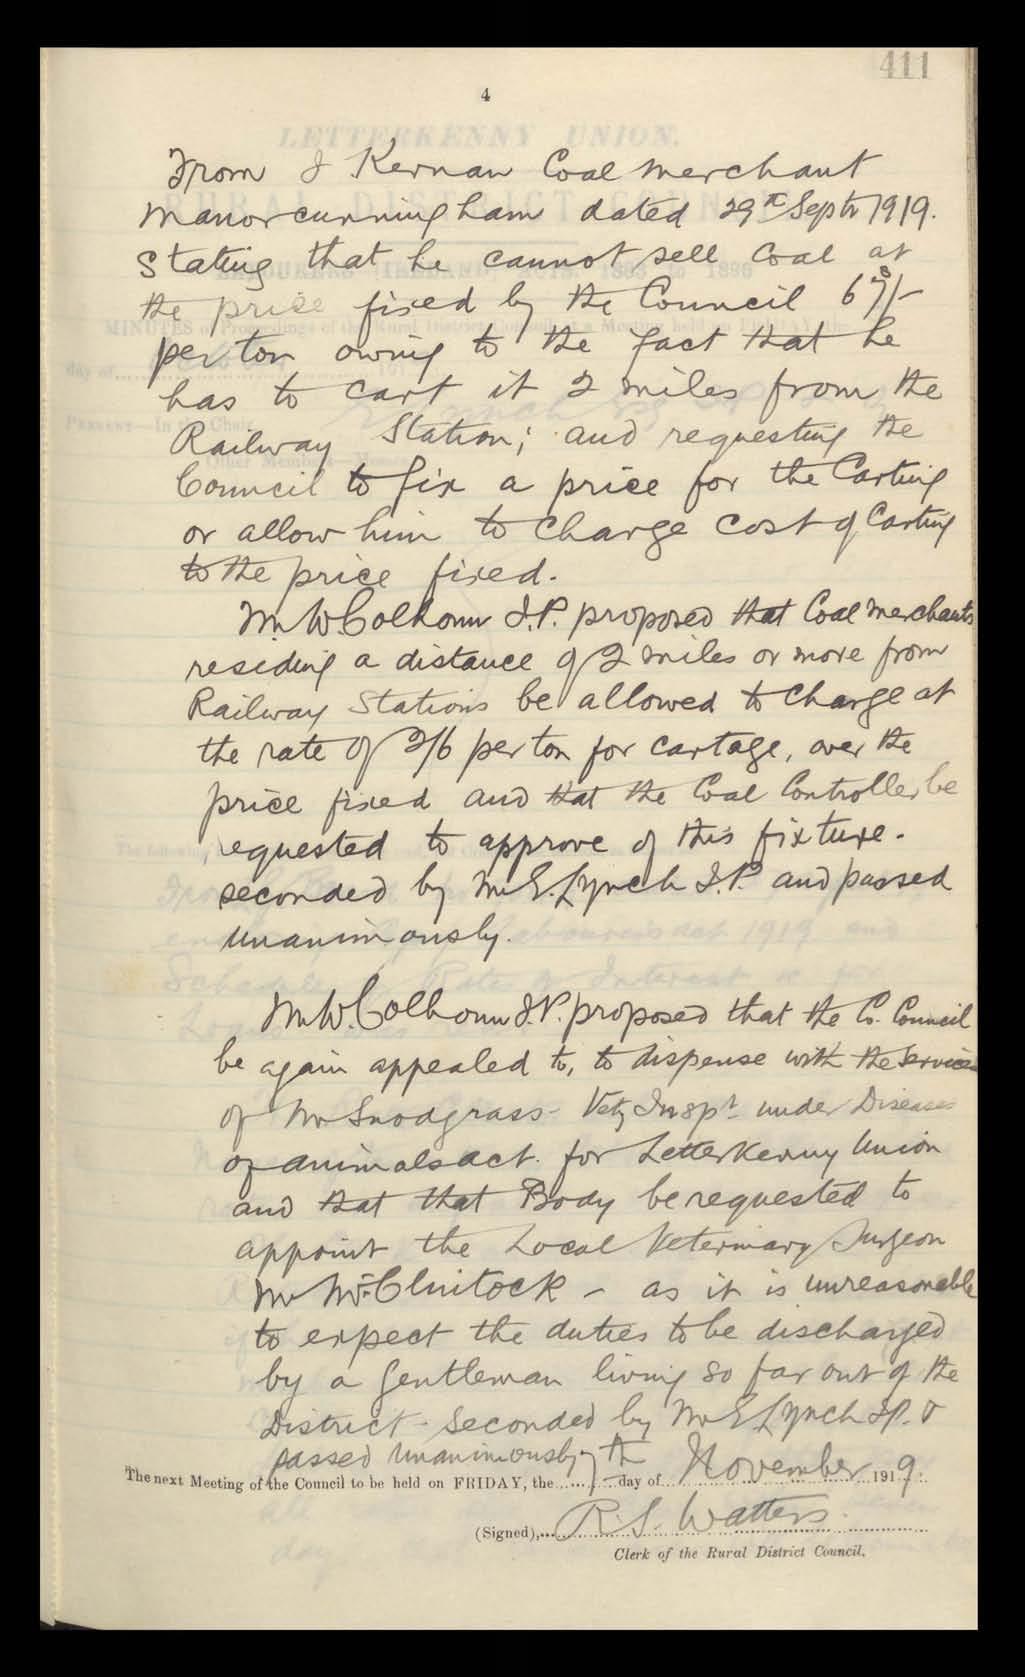 411
4
From J Kernan Coal Merchant
Manorcunningham dated 29th Septr 1919.
Stating that he cannot sell Coal at
the price fixed by the Council
per ton owing to the fact that he
has to cart it 2 miles from the
Railway Station; and requesting the
Council to fix a price for the Carting
or allow him to charge cost of Carting
to the price fixed.
Mr W Colhoun J.P. proposed that Coal Merchants
residing a distance of 2 miles or more from
Railway Stations be allowed to charge at
the rate of 2/6 per ton for cartage, over the
price fixed and that the Coal Controller be
requested to approve of this fixture.
seconded by Mr E. Lynch J.P. and passed
unanimously.
Mr W. Colhoun J.P. proposed that the Co. Council
be again appealed to, to dispense with the services
of Mr Snodgrass - Vety Inspr under Diseases
of animals act. for Letterkenny Union
and that that Body be requested to
appoint the Local Veterinary Surgeon
Mr McClintock - as it is unreasonable
to expect the duties to be discharged
by a gentleman living so far out of the
District - Seconded by Mr E Lynch J.P. &
passed unanimously
The next Meeting of the Council to be held on FRIDAY, the 7th day of November 1919.
(Signed), R. S. Watters
Clerk of the Rural District Council.